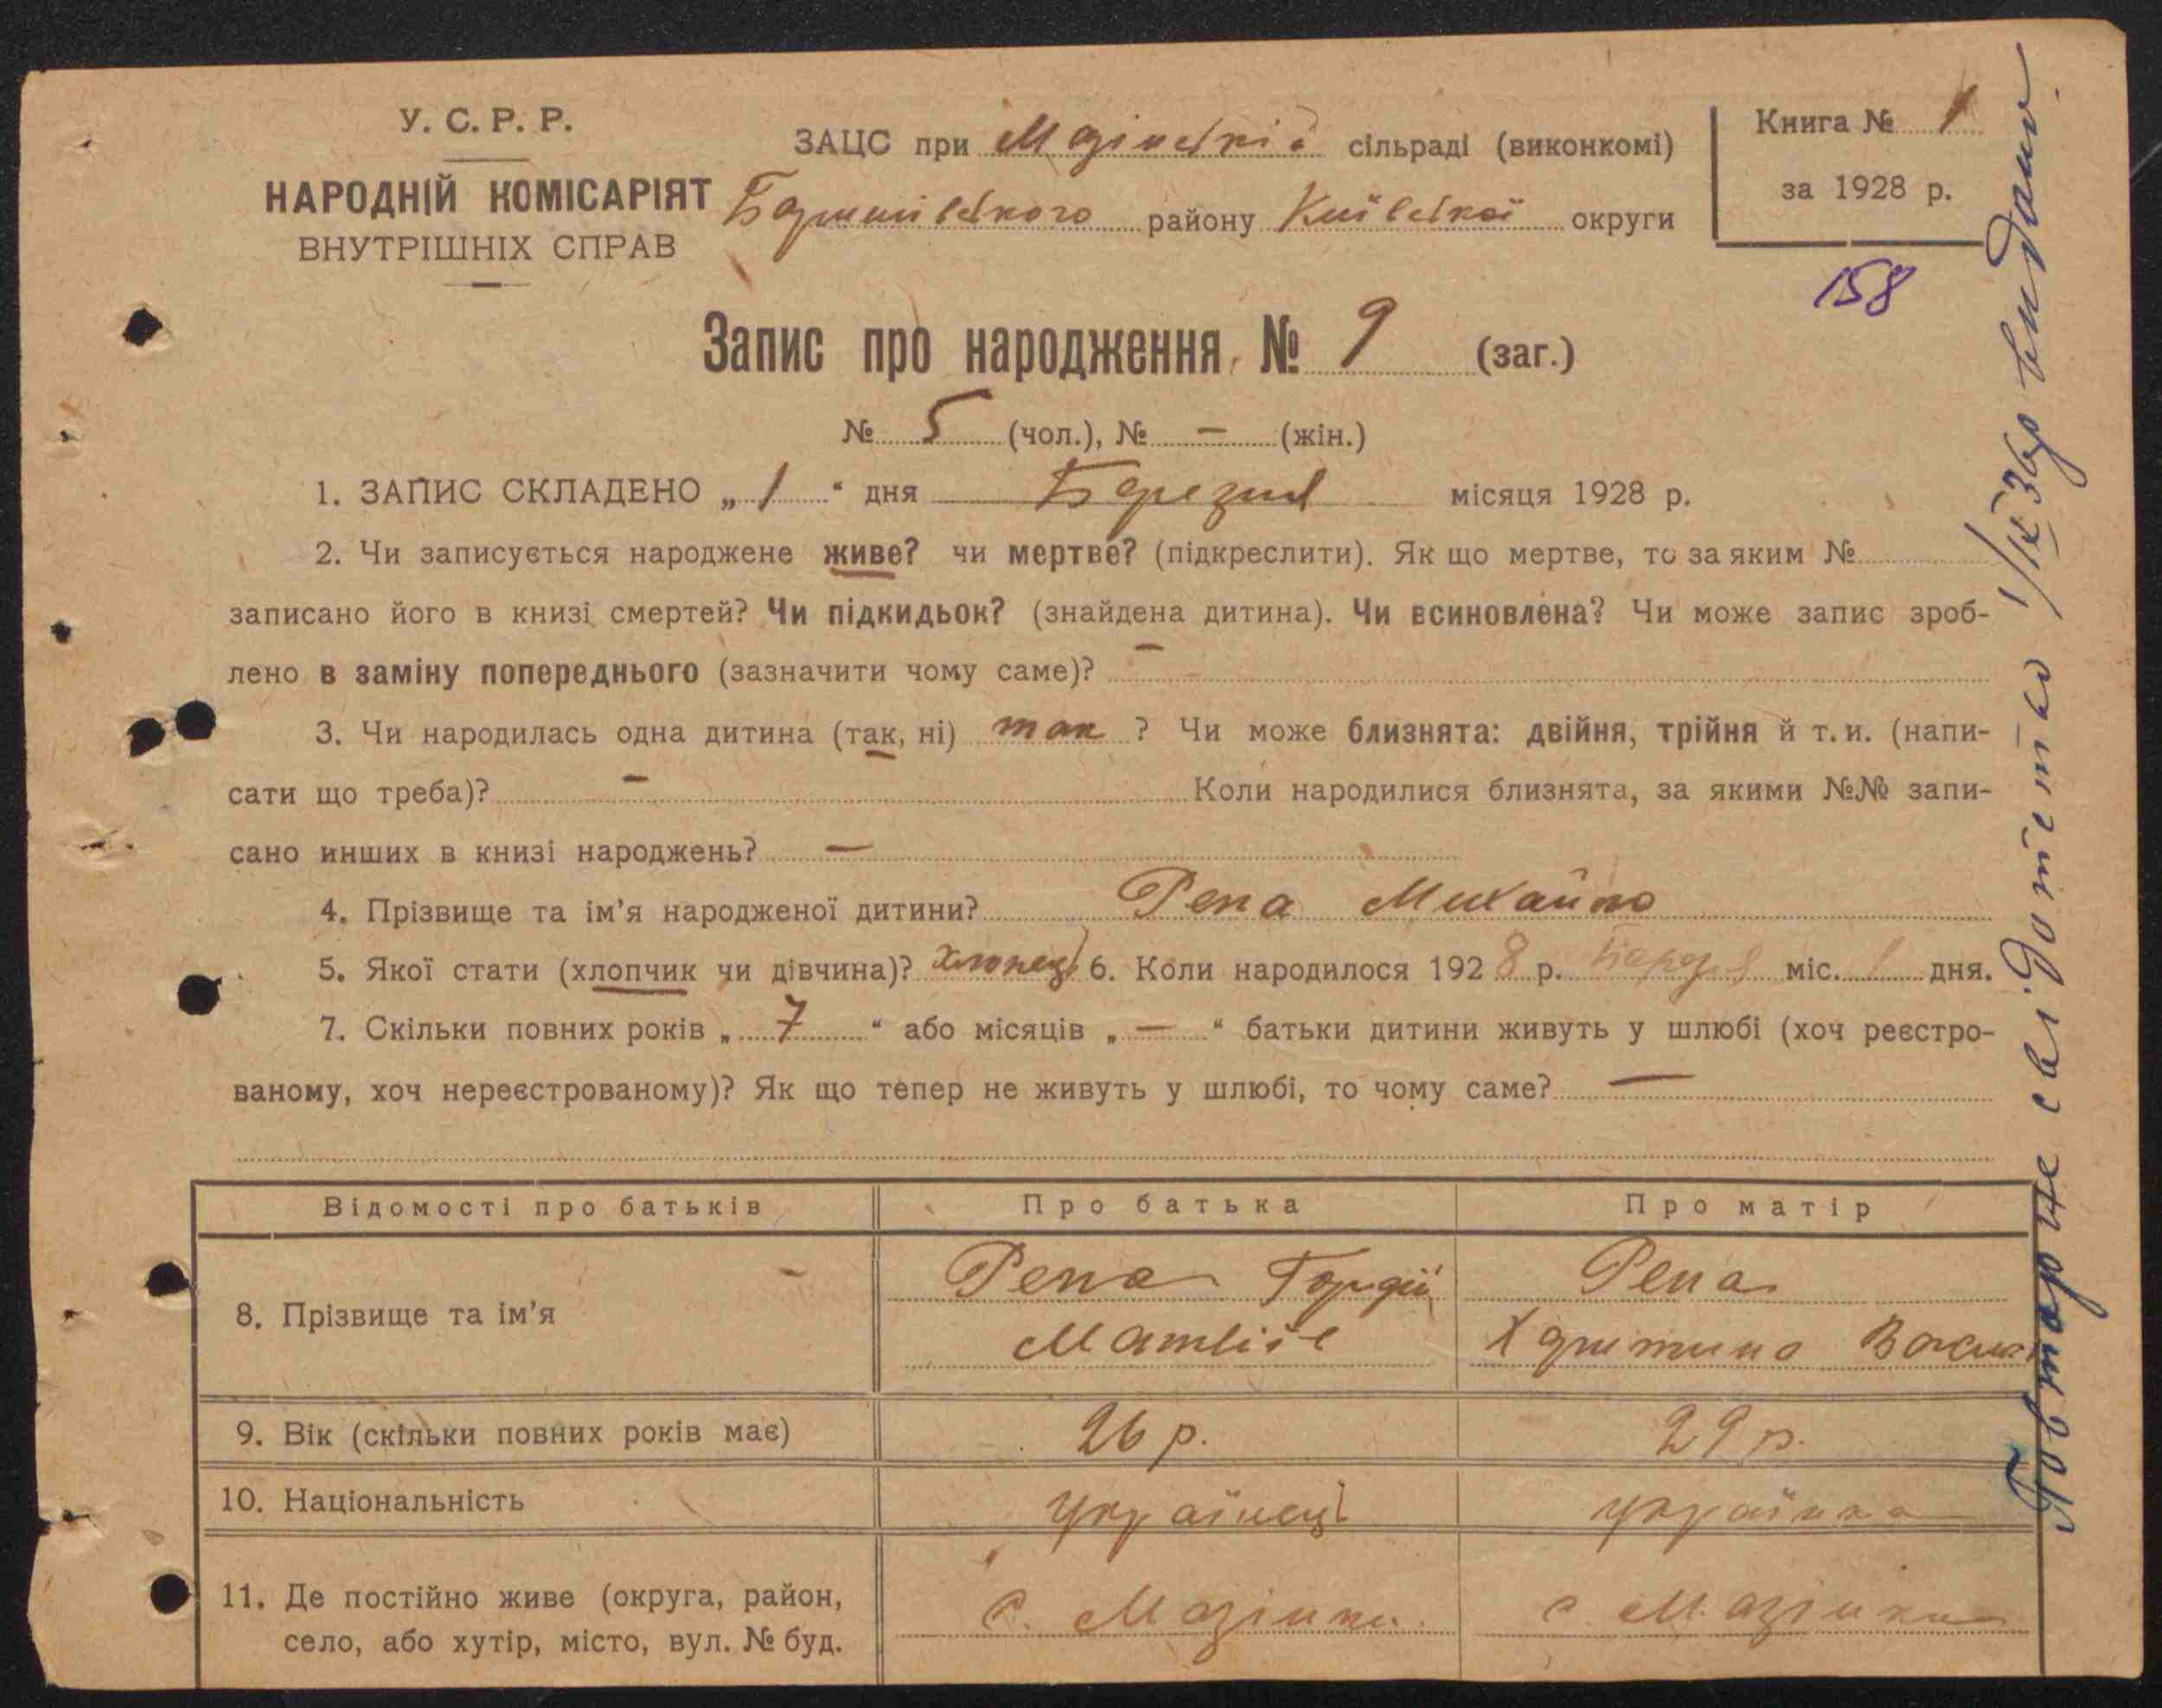 У. С. Р. Р.
НАРОДНІЙ КОМІСАРІЯТ
ВНУТРІШНІХ СПРАВ
ЗАЦС при Мазінській сільраді (виконкомі)
Баришівського району Київської округи
Книга № 1
за 1928 р.
158
Запис про народження № 9 (заг.)
№ 5 (чол.), № — (жін.)
1. ЗАПИС СКЛАДЕНО „ 1 “ дня Березня місяця 1928 р.
2. Чи записується народжене живе? чи мертве? (підкреслити). Як що мертве, то за яким №
записано його в книзі смертей? Чи підкидьок? (знайдена дитина). Чи всиновлена? Чи може запис зроб-
лено в заміну попереднього (зазначити чому саме)? —
3. Чи народилась одна дитина (так, ні) так ? Чи може близнята: двійня, трійня й т. и. (напи-
сати що треба)? — Коли народилися близнята, за якими №№ запи-
сано инших в книзі народжень? —
4. Прізвище та ім’я народженої дитини? Репа Михайло
5. Якої стати (хлопчик чи дівчина)? хлопець 6. Коли народилося 1928 р. міс. 1 дня.
7. Скільки повних років „ 7 “ або місяців „ — “ батьки дитини живуть у шлюбі (хоч реєстро-
ваному, хоч нереєстрованому)? Як що тепер не живуть у шлюбі, то чому саме? —
Відомості про батьків Про батька Про матір
8. Прізвище та ім’я
Репа Гордій
Матвіїв
Репа
Харитина
9. Вік (скільки повних років має) 26 р. 29 р.
10. Національність українець українка
11. Де постійно живе (округа, район,
село, або хутір, місто, вул. № буд.
с. Мазінки с. Мазінки
Повторне свідотство 1/IX 36р видано.